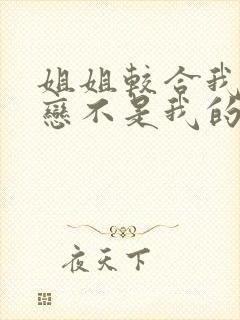 姐姐較合我
戀不是我的
夜天下